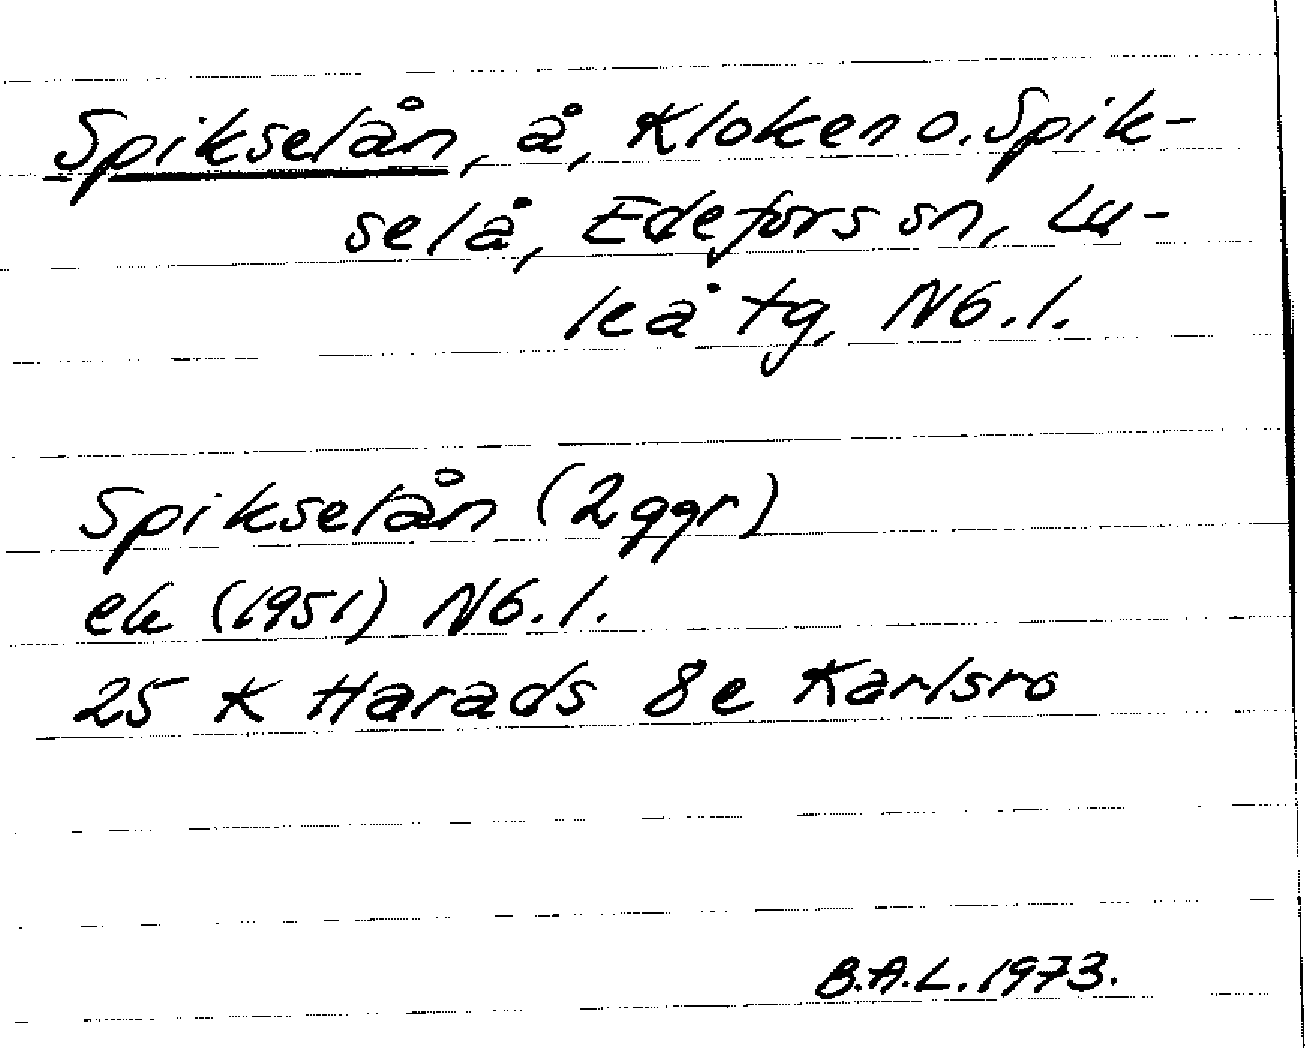 Spikselån, å, Kloken o. Spik-
selå, Edefors sn, Lu-
leå tg, Nb. l.
Spikselån (2 ggr)
ek (1951) Nb. l.
25 K Harads 8e Karlsro
B.A.L. 1973.